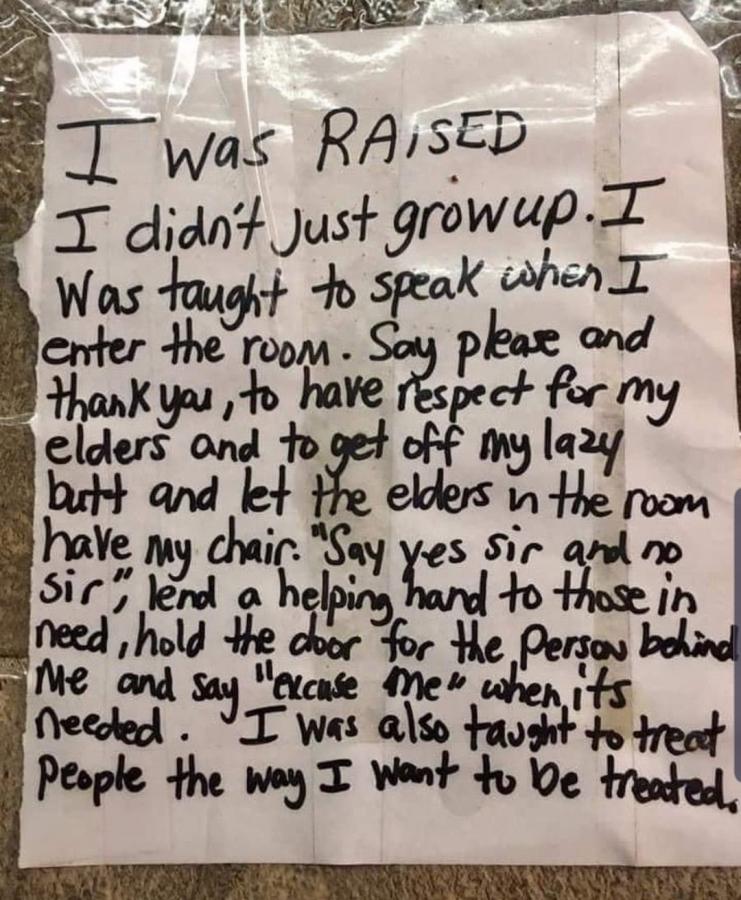 I was RAISED
I didn't just grow up. I
was taught to speak when I
enter the room. Say please and
thank you, to have respect for my
elders and to get off my lazy
butt and let the elders in the room
have my chair. "Say yes sir and no
sir", lend a helping hand to those in
need, hold the door for the person behind
me and say "excuse me" when its
needed. I was also taught to treat
people the way I want to be treated.